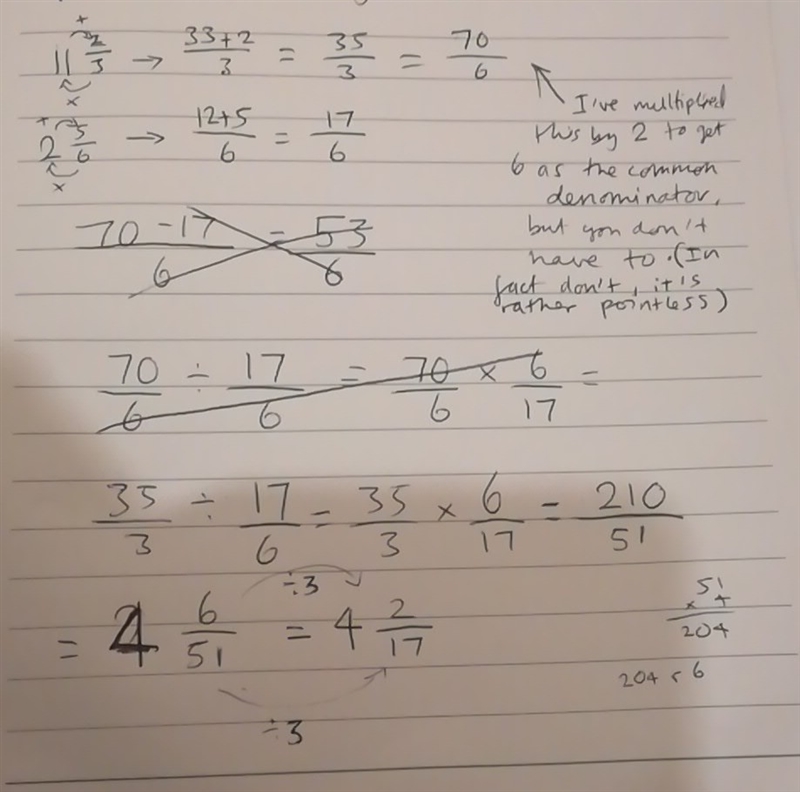 +
11 2/3 → 33+2/3 = 35/3 = 70/6
x
+
2 5/6 → 12+5/6 = 17/6
x
I've multiplied
this by 2 to get
6 as the common
denominator,
but you don't
have to. (In
fact don't, it's
rather pointless)
70 - 17/6 = 53/6
70/6 ÷ 17/6 = 70/6 × 6/17 =
35/3 ÷ 17/6 = 35/3 × 6/17 = 210/51
÷3
= 4 6/51 = 4 2/17
÷3
51
× 4
204
204 r 6